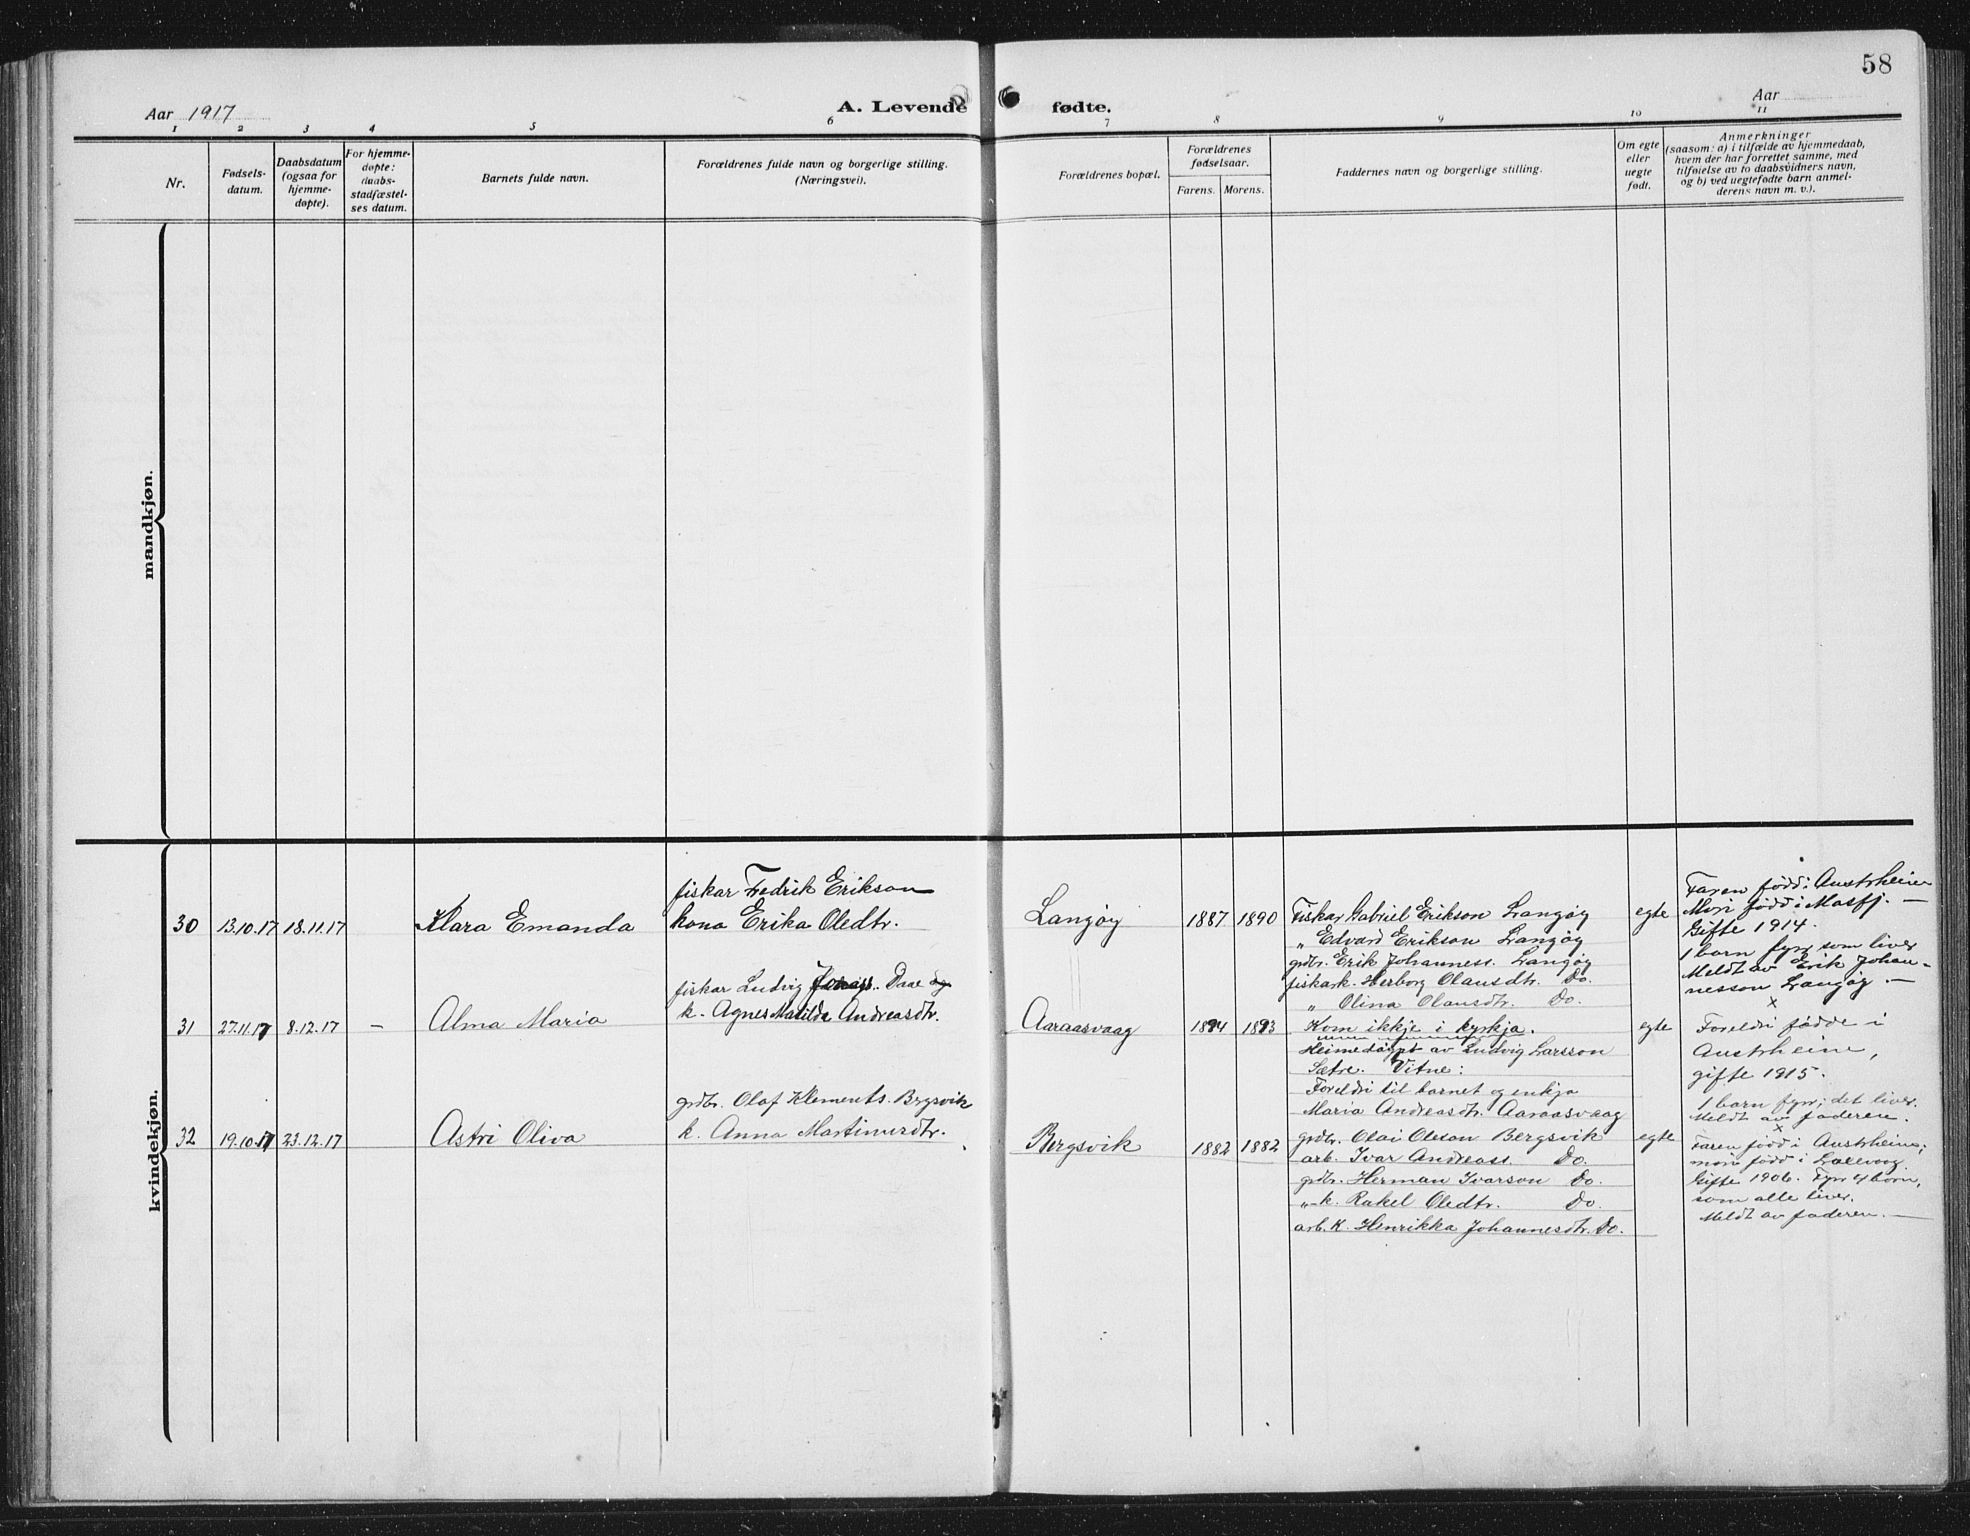 58
Aar 1917
A. Levende fødte.
Aar
1 2 3 4 5 6 7 8 9 10 11
Nr.
Fødsels-
datum.
Daabsdatum
(ogsaa for
hjemme-
døpte).
For hjemme-
døpte:
daabs-
stadfæstel-
ses datum.
Barnets fulde navn.
Forældrenes fulde navn og borgerlige stilling.
(Næringsvei).
Forældrenes bopæl.
Forældrenes
fødselsaar.
Farens. Morens.
Faddernes navn og borgerlige stilling.
Om egte
eller
uegte
født.
Anmerkninger
(saasom: a) i tilfælde av hjemmedaab,
hvem der har forrettet samme, med
tilføielse av to daabsvidners navn,
og b) ved uegtefødte barn anmel-
derens navn m. v.).
mandkjøn.
kvindekjøn.
30 13.10.17 18.11.17 Klara Emanda
fiskar Fredrik Erikson
kona Erika Oledtr.
Langøy 1887 1890
Fiskar Gabriel Erikson Langøy
„ Edvard Erikson Langøy
grdbr. Erik Johanness. Langøy
fiskark. Herborg Olausdtr. Do.
„ Olina Olausdtr. Do.
egte
Faren fødd i Austrheim
Mori fødd i Masfj. —
Gifte 1914.
1 barn fyrr som liver
Meldt av Erik Johan-
nesson Langøy. —
x
31 27.11.17 8.12.17 — Alma Maria
fiskar Ludvig Jonass. Daae og
k. Agnes Matilde Andreasdtr.
Aaraasvaag 1894 1893
Kom ikkje i kyrkja.
Heimedøypt av Ludvig Larsson
Sætre. Vitne:
Foreldri til barnet og enkja
Maria Andreasdtr. Aaraasvaag
egte
Foreldri fødde i
Austrheim,
gifte 1915.
1 barn fyrr; det liver.
Meldt av faderen.
x
32 19.10.17 23.12.17 Astri Oliva
grdbr. Olaf Klements. Bergsvik
k. Anna Martinusdtr.
Bergsvik 1882 1882
grdbr. Olai Oleson Bergsvik
arb. Ivar Andreass. Do.
grdbr. Herman Ivarson Do.
„ k. Rakel Oledtr. Do.
arb. K. Henrikka Johannesdtr. Do.
egte
Faren fødd i Austrheim;
mori fødd i
Gifte 1906. Fyrr 4 born,
som alle liver.
Meldt av faderen. —